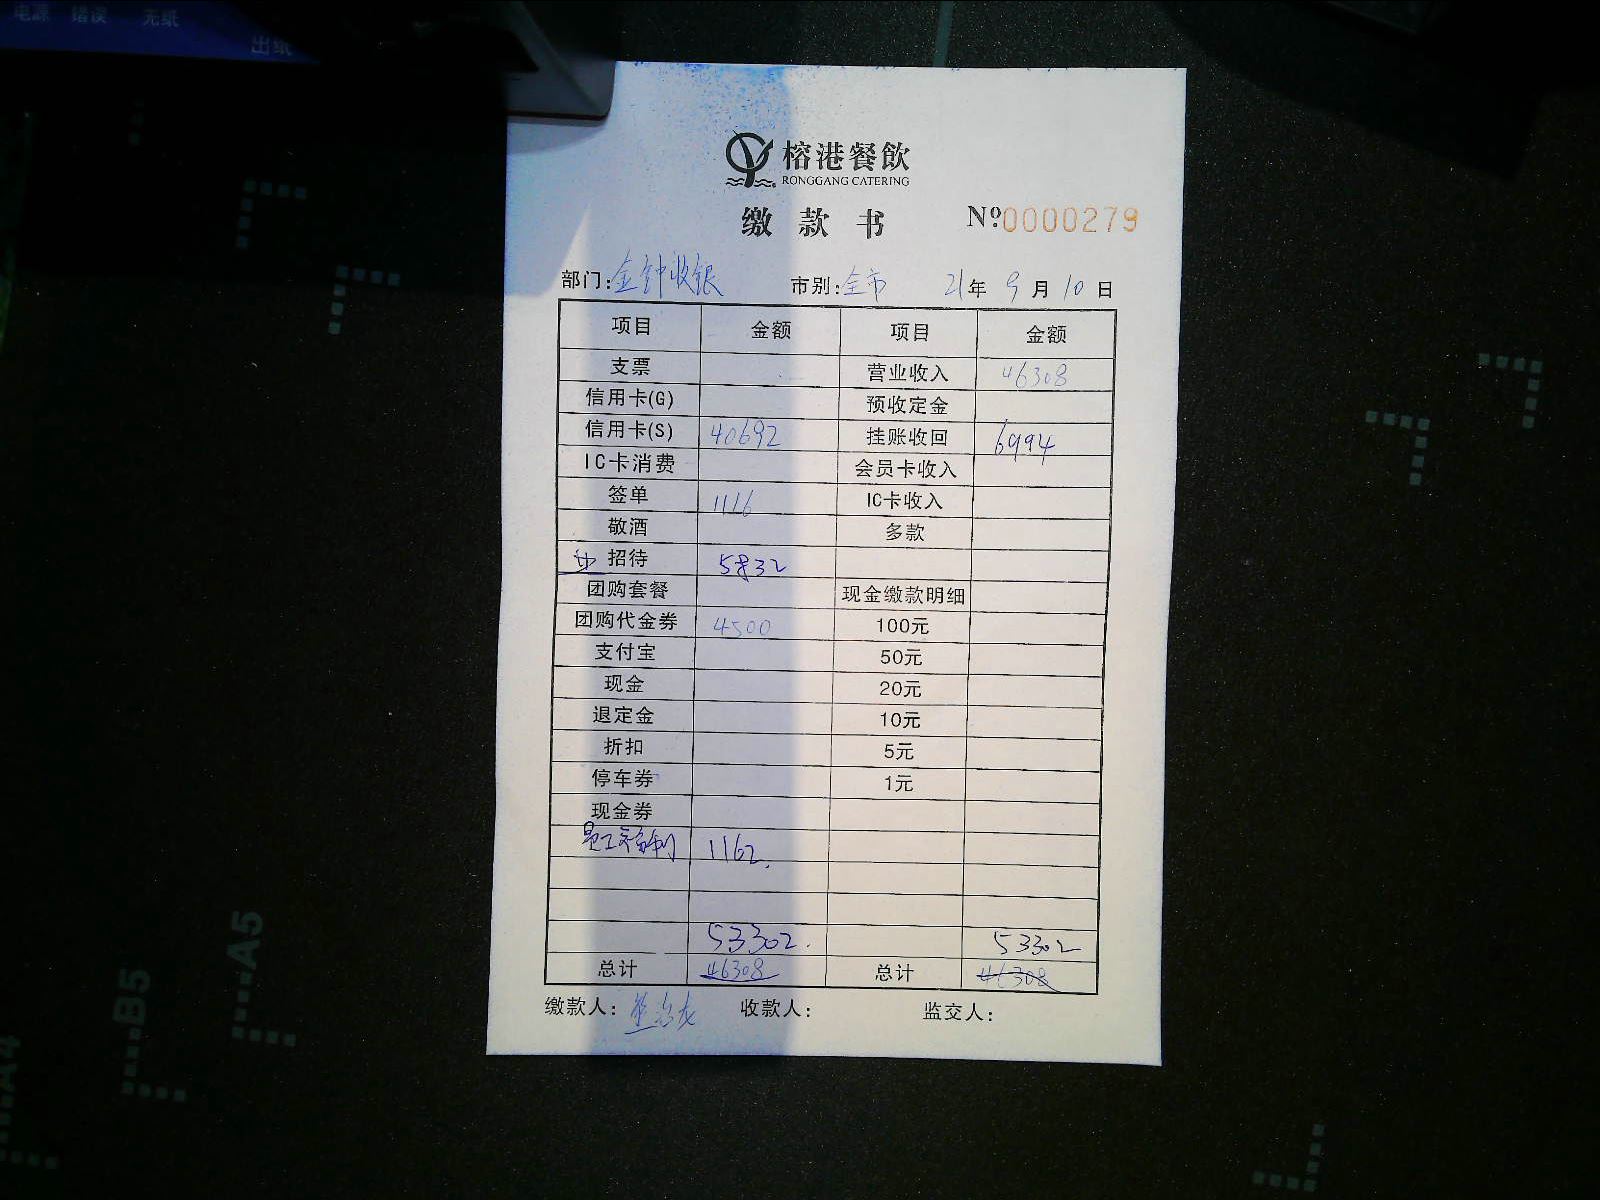 电源 错误 无纸
出纸
榕港餐飲
RONGGANG CATERING
缴款书 Nº 0000279
部门: 金钟收银 市别: 全市 21年 9月 10日
项目 金额 项目 金额
支票 营业收入 46308
信用卡(G) 预收定金
信用卡(S) 40692 挂账收回 6994
IC卡消费 会员卡收入
签单 1116 IC卡收入
敬酒 多款
招待 5832
团购套餐 现金缴款明细
团购代金券 4500 100元
支付宝 50元
现金 20元
退定金 10元
折扣 5元
停车券 1元
现金券
员工 1162.
53302. 53302
总计 46308 总计 46308
缴款人: 收款人: 监交人:
A5
B5
A4